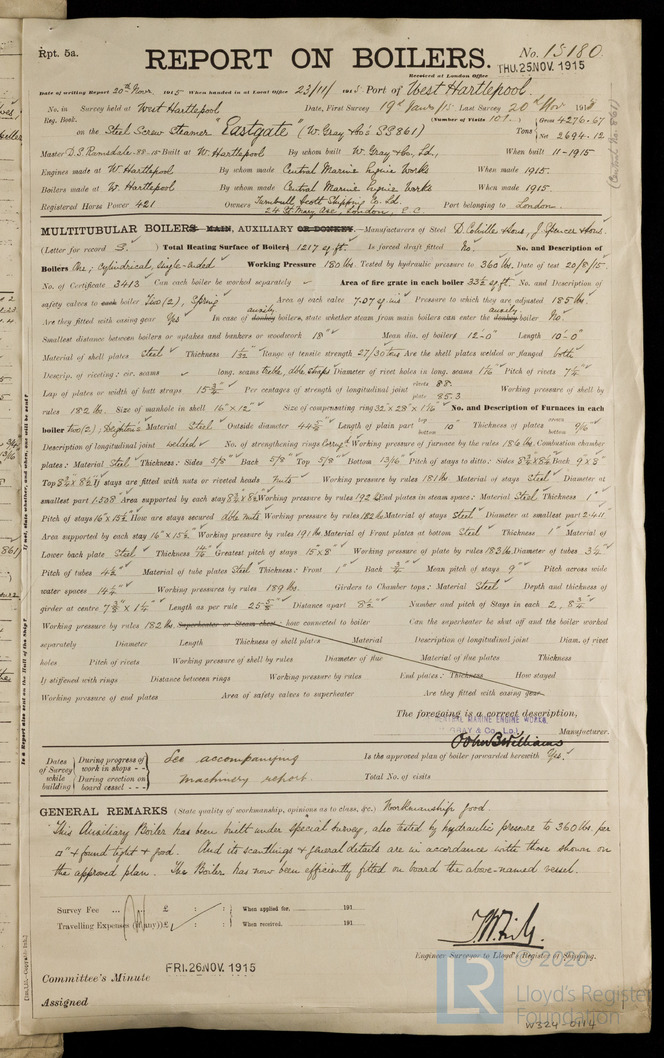 Rpt. 5a.
REPORT ON BOILERS.
No. 15180
Received at London Office THU. 25 NOV. 1915
Date of writing Report 20th Novr 1915 When handed in at Local Office 23/11/1915 Port of West Hartlepool
No. in Survey held at West Hartlepool Date, First Survey 19th Last Survey 20th Nov 191
Reg. Book. (Number of Visits 101)
on the Steel Screw Steamer "Eastgate" (W. Gray & Co's SS 861) Tons Gross 4276.67 Net 2694.12
Master D. S. Ramsdale Built at W. Hartlepool By whom built W. Gray & Co., Ltd., When built 11-1915
Engines made at W. Hartlepool By whom made Central Marine Engine Works When made 1915.
Boilers made at W. Hartlepool By whom made Central Marine Engine Works When made 1915.
Registered Horse Power 421 Owners Turnbull Scott Shipping Co. Ld. Port belonging to London.
24 St. Mary Axe, London, E.C.
MULTITUBULAR BOILERS MAIN, AUXILIARY OR DONKEY.—Manufacturers of Steel D. Colville & Sons, J. Spencer & Sons.
(Letter for record S.) Total Heating Surface of Boilers 1217 sq. ft. Is forced draft fitted No. No. and Description of
Boilers One; Cylindrical, single-ended Working Pressure 180 lbs. Tested by hydraulic pressure to 360 lbs. Date of test 20/8/15
No. of Certificate 3413 Can each boiler be worked separately Area of fire grate in each boiler 33½ sq. ft. No. and Description of
safety valves to each boiler Two (2), Spring Area of each valve 7.07 sq. ins Pressure to which they are adjusted 185 lbs.
Are they fitted with easing gear Yes In case of donkey boilers, state whether steam from main boilers can enter the donkey boiler No.
Smallest distance between boilers or uptakes and bunkers or woodwork 18" Mean dia. of boilers 12'-0" Length 10'-0"
Material of shell plates Steel Thickness Range of tensile strength 27/30 tons Are the shell plates welded or flanged both
Descrip. of riveting: cir. seams long. seams treble, dble straps Diameter of rivet holes in long. seams Pitch of rivets
Lap of plates or width of butt straps Per centages of strength of longitudinal joint rivets 88. plate 85.3 Working pressure of shell by
rules 182 lbs. Size of manhole in shell 16" x 12" Size of compensating ring No. and Description of Furnaces in each
boiler Two (2); Deighton's Material Steel Outside diameter Length of plain part top bottom 10" Thickness of plates crown bottom 9/16"
Description of longitudinal joint welded No. of strengthening rings Working pressure of furnace by the rules 186 lbs. Combustion chamber
plates: Material Steel Thickness: Sides 5/8" Back 5/8" Top 5/8" Bottom 13/16" Pitch of stays to ditto: Sides Back 9" x 8"
Top If stays are fitted with nuts or riveted heads nuts Working pressure by rules 181 lbs Material of stays Steel Diameter at
smallest part Area supported by each stay Working pressure by rules 192 lbs End plates in steam space: Material Steel Thickness 1"
Pitch of stays 16" x 15½" How are stays secured dble nuts Working pressure by rules 182 lbs Material of stays Steel Diameter at smallest part
Area supported by each stay 16" x 15½" Working pressure by rules 191 lbs Material of Front plates at bottom Steel Thickness 1" Material of
Lower back plate Steel Thickness Greatest pitch of stays 15" x 8" Working pressure of plate by rules 183 lbs Diameter of tubes 3¼"
Pitch of tubes 4½" Material of tube plates Steel Thickness: Front 1" Back ¾" Mean pitch of stays 9" Pitch across wide
water spaces 14¼" Working pressures by rules 189 lbs. Girders to Chamber tops: Material Steel Depth and thickness of
girder at centre Length as per rule Distance apart 8½" Number and pitch of Stays in each 2, 8¾"
Working pressure by rules 182 lbs. Superheater or Steam chest; how connected to boiler Can the superheater be shut off and the boiler worked
separately Diameter Length Thickness of shell plates Material Description of longitudinal joint Diam. of rivet
holes Pitch of rivets Working pressure of shell by rules Diameter of flue Material of flue plates Thickness
If stiffened with rings Distance between rings Working pressure by rules End plates: Thickness How stayed
Working pressure of end plates Area of safety valves to superheater Are they fitted with easing gear
The foregoing is a correct description,
CENTRAL MARINE ENGINE WORKS
GRAY & Co. Ld.
John B Williams Manufacturer.
Dates of Survey while building
During progress of work in shops - -
During erection on board vessel - - -
See accompanying machinery report.
Is the approved plan of boiler forwarded herewith Yes.
Total No. of visits
GENERAL REMARKS (State quality of workmanship, opinions as to class, &c.) Workmanship good.
This Auxiliary Boiler has been built under special survey, also tested by hydraulic pressure to 360 lbs. per
□" & found tight & good. And its scantlings & general details are in accordance with those shown on
the approved plan. The Boiler has now been efficiently fitted on board the above-named vessel.
Survey Fee ... £ : : When applied for, 191
Travelling Expenses (if any) £ : : When received, 191
Engineer Surveyor to Lloyd's Register of Shipping.
Committee's Minute FRI. 26 NOV. 1915
Assigned
© 2020
LR
Lloyd's Register
Foundation
W324-0114